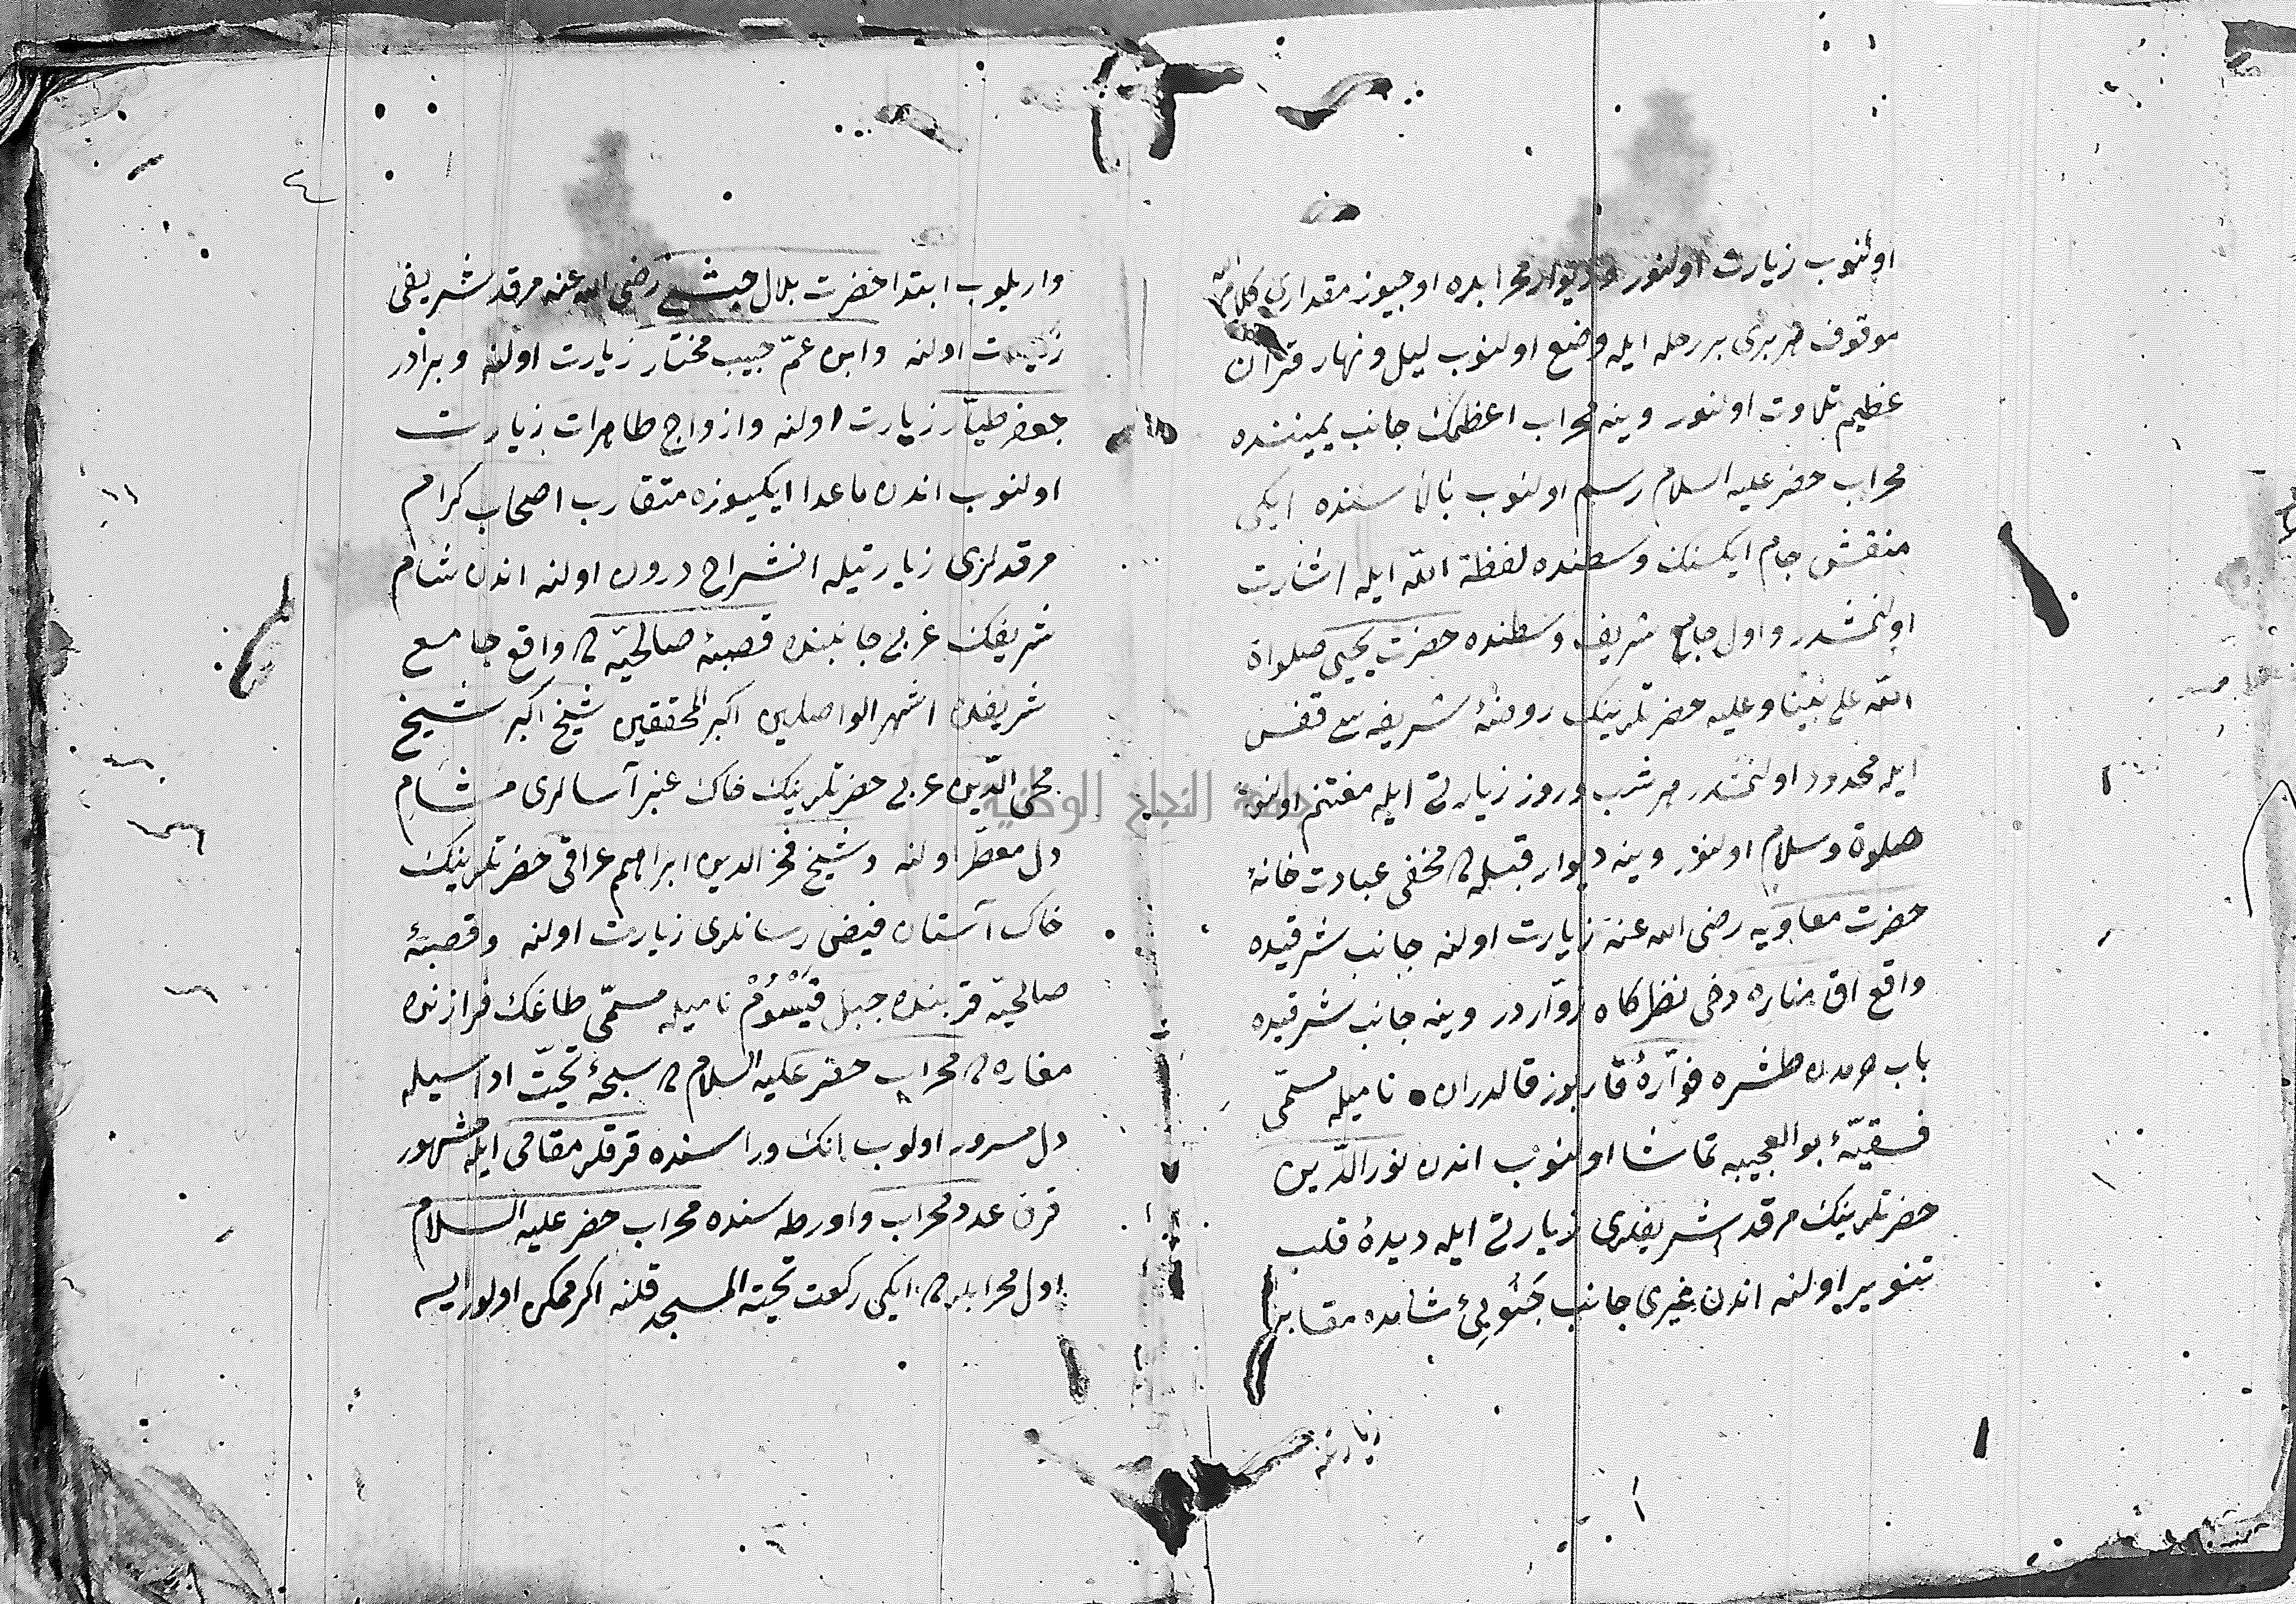 اولنوب زيارت اولنور وديوار محرابده اوچيوز مقدارى كلام
موقوف هر برى بر رحله ايله وضع اولنوب ليل و نهار قرآن
عظيم تلاوت اولنور وينه محراب اعظمك جانب يميننده
محراب حضر عليه السلام رسم اولنوب بالاسنده ايكى
منقش جام ايكسنك وسطنده لفظة الله ايله اشارت
اولنمشدر واول جامع شريف وسطنده حضرت يحيى صلواة
الله على نبينا وعليه حضرتلرينك روضۀ شريفه سى قفس
ايله محدود اولنمشدر هر شب وروز زيارتى ايله مغتنم اولنوب
صلوة وسلام اولنور وينه ديوار قبله ده مخفى عبادت خانۀ
حضرت معاويه رضى الله عنه زيارت اولنه جانب شرقيده
واقع اق مناره دخى نظركاه زواردر وينه جانب شرقيده
باب طشره فوّارۀ قاربوز قالدران ناميله مسمّى
فسقيّۀ بوالعجيبه تماشا اولنوب اندن نور الدّين
حضرتلرينك مرقد شريفلرى زيارتى ايله ديدۀ قلب
تنوير اولنه اندن غيرى جانب جَنُوبِئ شامده مقابر
زيارتنه
٤
واريلوب ابتدا حضرت بلال حبشى رضى الله عنه مرقد شريفى
زيارت اولنه وابن عمّ حبيب مختار زيارت اولنه وبرادر
جعفر طيّار زيارت اولنه وازواج طاهرات زيارت
اولنوب اندن ماعدا ايكيوزه متقارب اصحاب كرام
مرقدلرى زيارتيله انشراح درون اولنه اندن شام
شريفك غربى جانبنده قصبۀ صالحيّه ده واقع جامع
شريفده اشهر الواصلين اكبر المحققين شيخ اكبر شيخ
محى الدّين عربى حضرتلرينك خاك عنبر آسالرى مشام
دل معطّر اولنه وشيخ فخر الدين ابراهيم عراقى حضرتلرينك
خاك آستان فيض رسانلرى زيارت اولنه وقصبۀ
صالحيّه قربنده جبل قَيْسُومْ ناميله مسمّى طاغك فرازنده
مغاره ده محراب حضر عليه السلام ده سبحۀ تحيّت اداسيله
دل مسرور اولوب انك وراسنده قرقلر مقامى ايله مشهور
قرق عدد محراب واورطه سنده محراب حضر عليه السلام
اول محرابلرده ايكى ركعت تحيته المسجد قلنه اكر ممكن اولورايسه
جامعة النجاح الوطنية